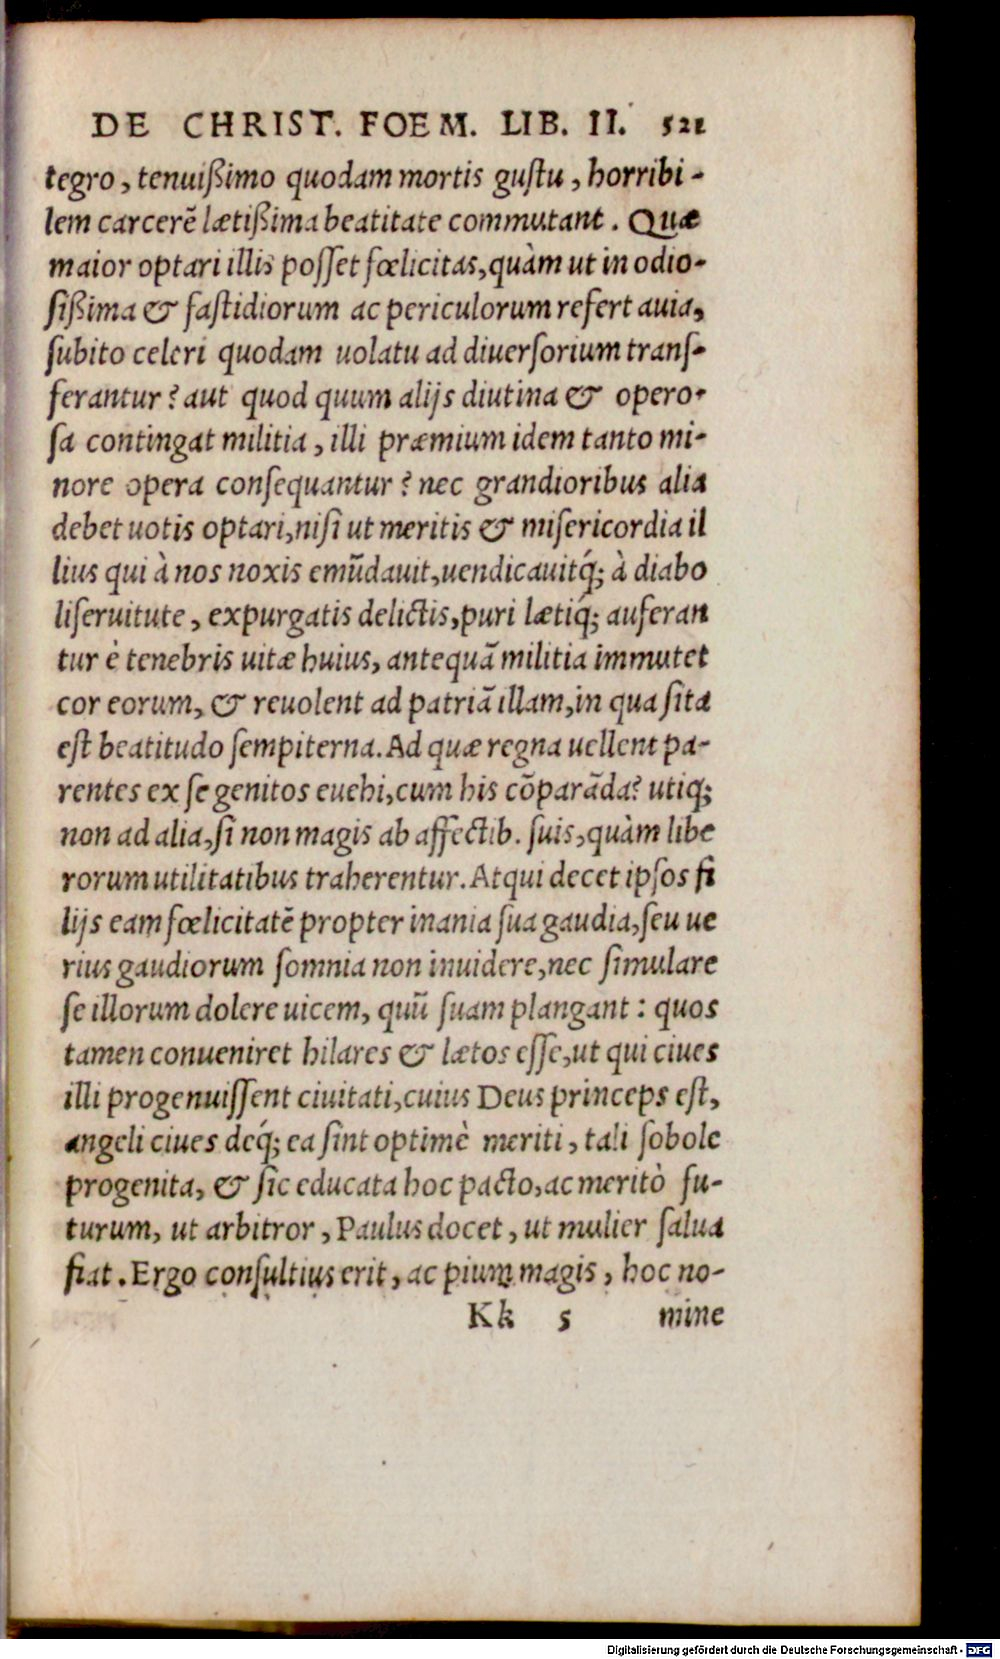 DE CHRIST. FOEM. LIB. II. 521
tegro, tenuißimo quodam mortis gustu, horribi-
lem carcerẽ lætißima beatitate commutant. Quæ
maior optari illis posset fœlicitas, quàm ut in odio-
sißima & fastidiorum ac periculorum refert auia,
subito celeri quodam uolatu ad diuersorium trans-
ferantur? aut quod quum alijs diutina & opero-
sa contingat militia, illi præmium idem tanto mi-
nore opera consequantur? nec grandioribus alia
debet uotis optari, nisi ut meritis & misericordia il
lius qui à nos noxis emũdauit, uendicauitq́; à diabo
li seruitute, expurgatis delictis, puri lætiq́; auferan
tur è tenebris uitæ huius, antequã militia immutet
cor eorum, & reuolent ad patriã illam, in qua sita
est beatitudo sempiterna. Ad quæ regna uellent pa-
rentes ex se genitos euehi, cum his cõparãda? utiq;
non ad alia, si non magis ab affectib. suis, quàm libe
rorum utilitatibus traherentur. Atqui decet ipsos fi
lijs eam fœlicitatẽ propter inania sua gaudia, seu ue
rius gaudiorum somnia non inuidere, nec simulare
se illorum dolere uicem, quũ suam plangant: quos
tamen conueniret hilares & lætos esse, ut qui ciues
illi progenuissent ciuitati, cuius Deus princeps est,
angeli ciues deq́; ea sint optimè meriti, tali sobole
progenita, & sic educata hoc pacto, ac meritò fu-
turum, ut arbitror, Paulus docet, ut mulier salua
fiat. Ergo consultius erit, ac pium magis, hoc no-
Kk 5 mine
Digitalisierung gefördert durch die Deutsche Forschungsgemeinschaft - DFG